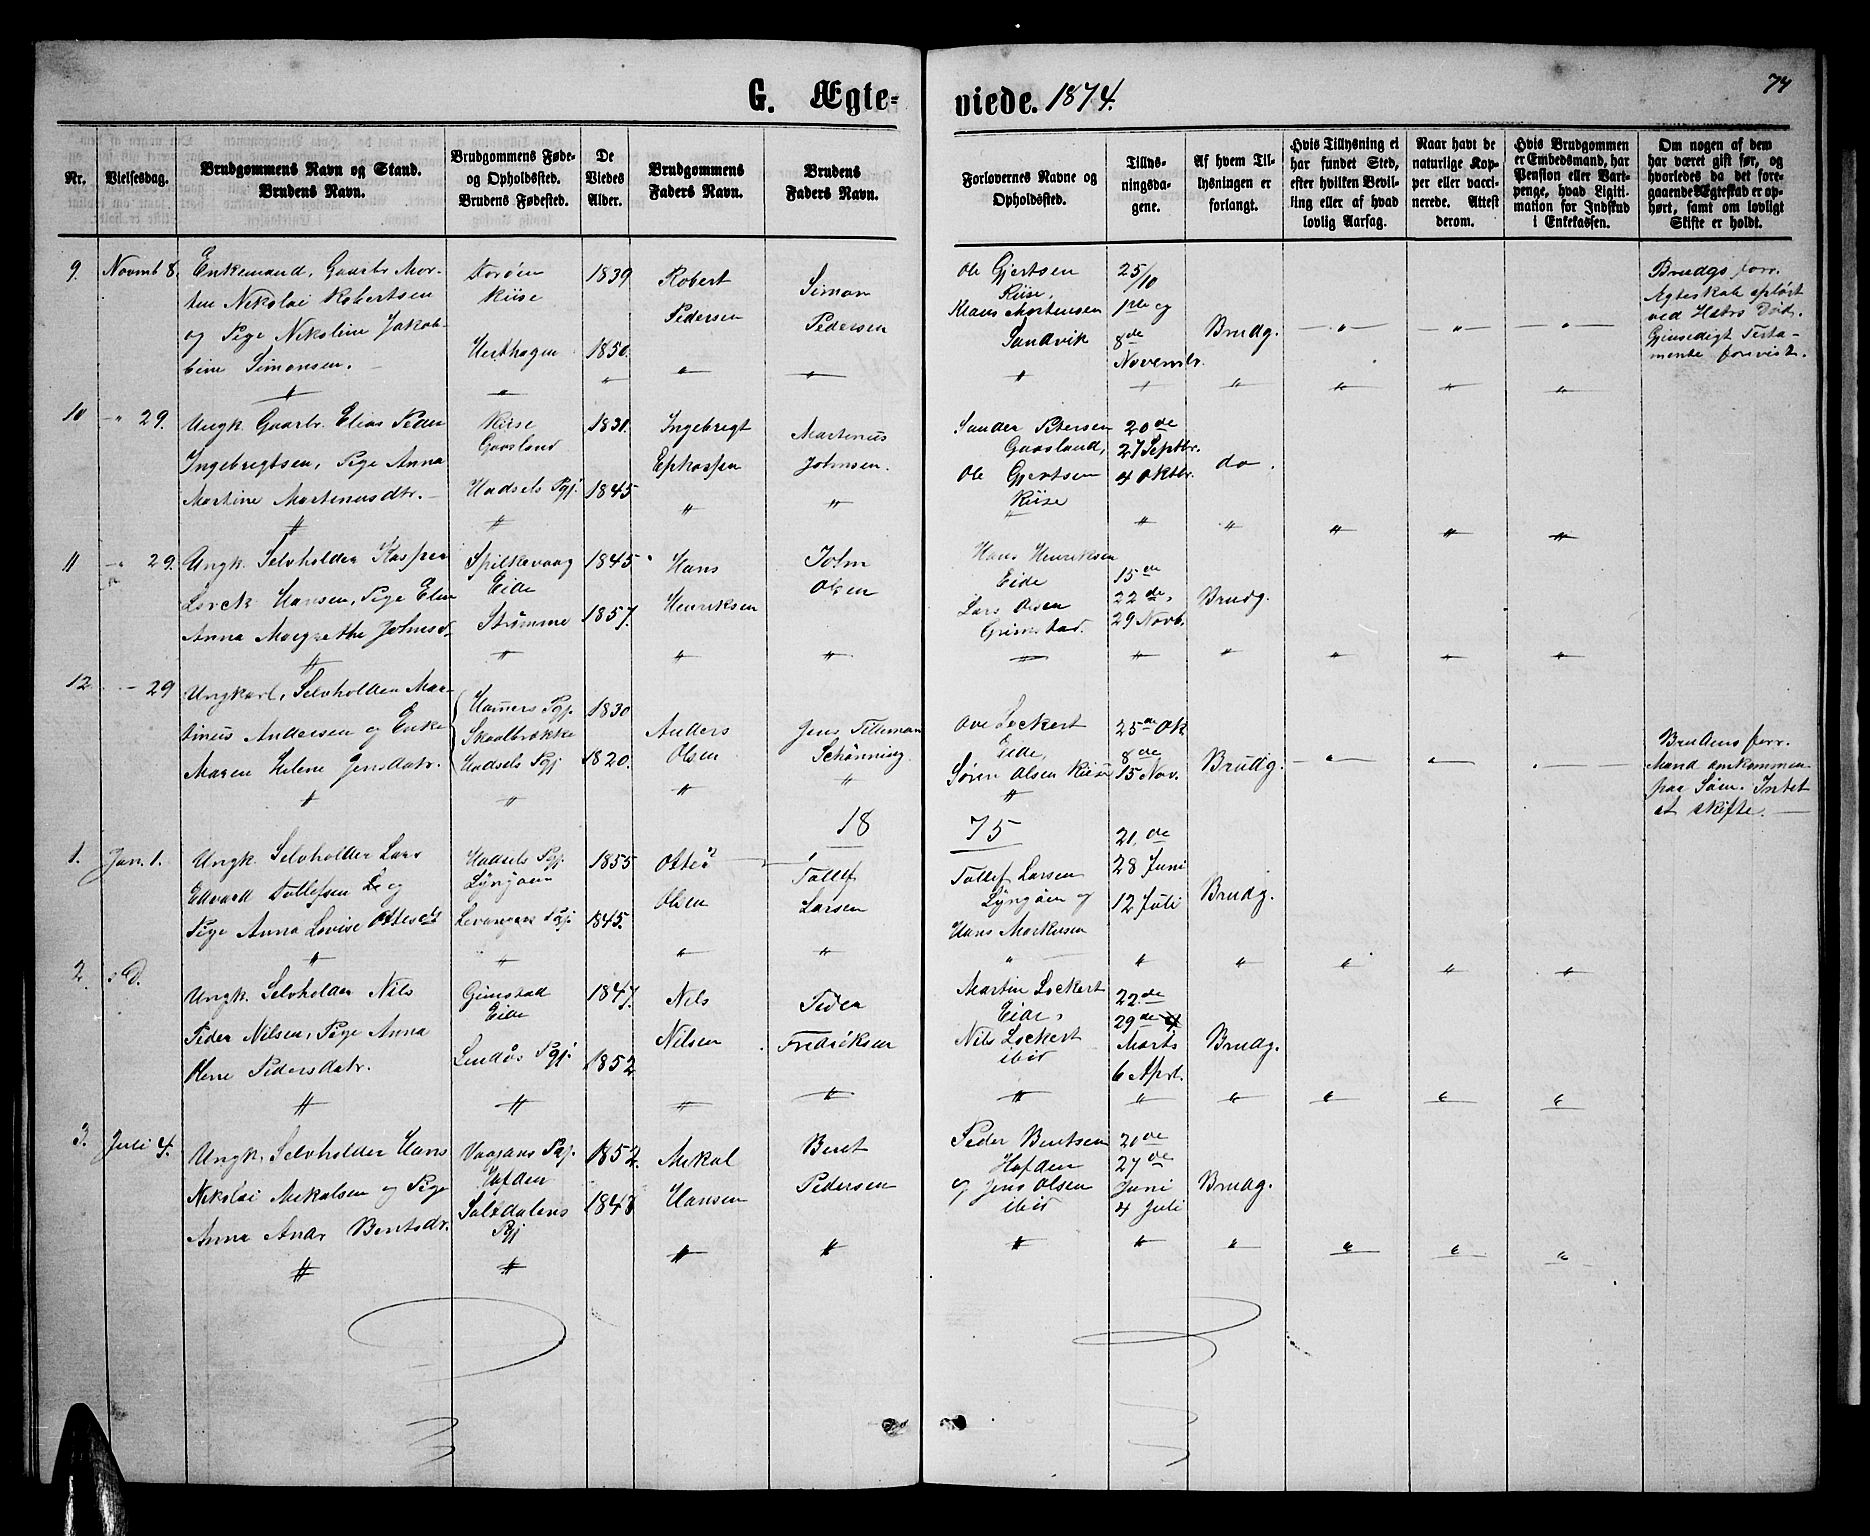 G. Ægte- viede. 1874.
74
Nr. Vielsesdag. Brudgommens Navn og Stand. Brudens Navn. Brudgommens Føde- og Opholdssted. Brudens Fødested. De Viedes Alder. Brudgommens Faders Navn. Brudens Faders Navn.
Forlovernes Navne og Opholdssted. Tillys- ningsda- gene. Af hvem Til- lysningen er forlangt. Hvis Tillysning ei har fundet Sted, efter hvilken Bevil- ling eller af hvad lovlig Aarsag. Naar havt de naturlige Kop- per eller vacci- nerede. Attest derom. Hvis Brudgommen er Embedsmand, har Pension eller Vart- penge, hvad Ligiti- mation for Indskud i Enkekassen. Om nogen af dem har været gift før, og hvorledes da det fore- gaaende Ægteskab er op- hørt, samt om lovligt Skifte er holdt.
9. Novmb 8. Enkemand, Gaarbr. Mor-
ten Nikolai Robertsen
og Pige Nikoline Jakob-
bine Simonsen.
Riise
1839
1850.
Robert
Pedersen
Simon
Pedersen
Ole Gjertsen
Riise,
Klaus Mortensen
Sandvik
25/10
1ste og
8de
Novembr.
Brudg.
Brudgs forr.
Ægteskab opløst
ved Hstrs Død.
Gjensidigt Testa-
mente forevist.
10 29. Ungk. Gaarbr. Elias Peder
Ingebrigtsen, Pige Anna
Martine Martenusdtr.
Riise
Gaasland
Hadsels Pgj.
1831.
1845
Ingebrigt
Martenus
Johnsen.
Sander Petersen
Gaasland,
Ole Gjertsen
Riise
20de
27 Septbr.
4 Oktbr.
do.
11 29. Ungk. Selvholder Kasper
Lorck Hansen, Pige Elen
Anna Margrethe Johnsd.
Spilkevaag
Eide
Strømme
1845
1857.
Hans
Henriksen
John
Olsen
Hans Henriksen
Eide
Lars Olsen
Grimstad.
15de
22de,
29 Novb.
Brudg.
12 29 Ungkarl, Selvholder Mar-
tinus Andersen og Enke
Maren Helene Jensdatr.
Hamers Pgj.
Skaalbrække
Hadsels Pgj
1830
1820.
Anders
Olsen
Jens Tilleman
Schønning
Ove Lockert
Eide,
Søren Olsen Riise
25de Ok
8de
15 Nov.
Brudg.
Brudens forr.
Mand omkommen
paa Søen. Intet
at skifte.
18 75
1. Jan. 1. Ungk. Selvholder Lars
Edvard Tollefsen og
Pige Anna Lovise Ottesdt
Hadsels Pgj.
Lyngøen
Levangers Pgj.
1855
1845.
Otte
Olsen
Tollef
Larsen
Tollef Larsen
Lyngøen og
Hans Markusen
21de
28 Juni
12 Juli
Brudg.
2. Ungk. Selvholder Nils
Peder Nilsen, Pige Anna
Oline Pedersdatr.
Grimstad
Eide
Lindås Pgj.
1847.
1852
Nils
Nilsen
Peder
Fredriksen
Martin Lockert
Eide,
Nils Lockert
ibid
22de
29de
Marts
6 Aprl.
Brudg.
3. Juli 4. Ungk. Selvholder Hans
Nikolai Mekalsen og Pige
Anna Andr Bentsdr.
Vaagans Pgj.
Hafden
Saltdalens
Pgj
1852.
1848
Mekal
Hansen
Bent
Pedersen
Peder Bentsen
Hafden
og Jens Olsen
ibid
20de
27de
Juni
4 Juli
Brudg.